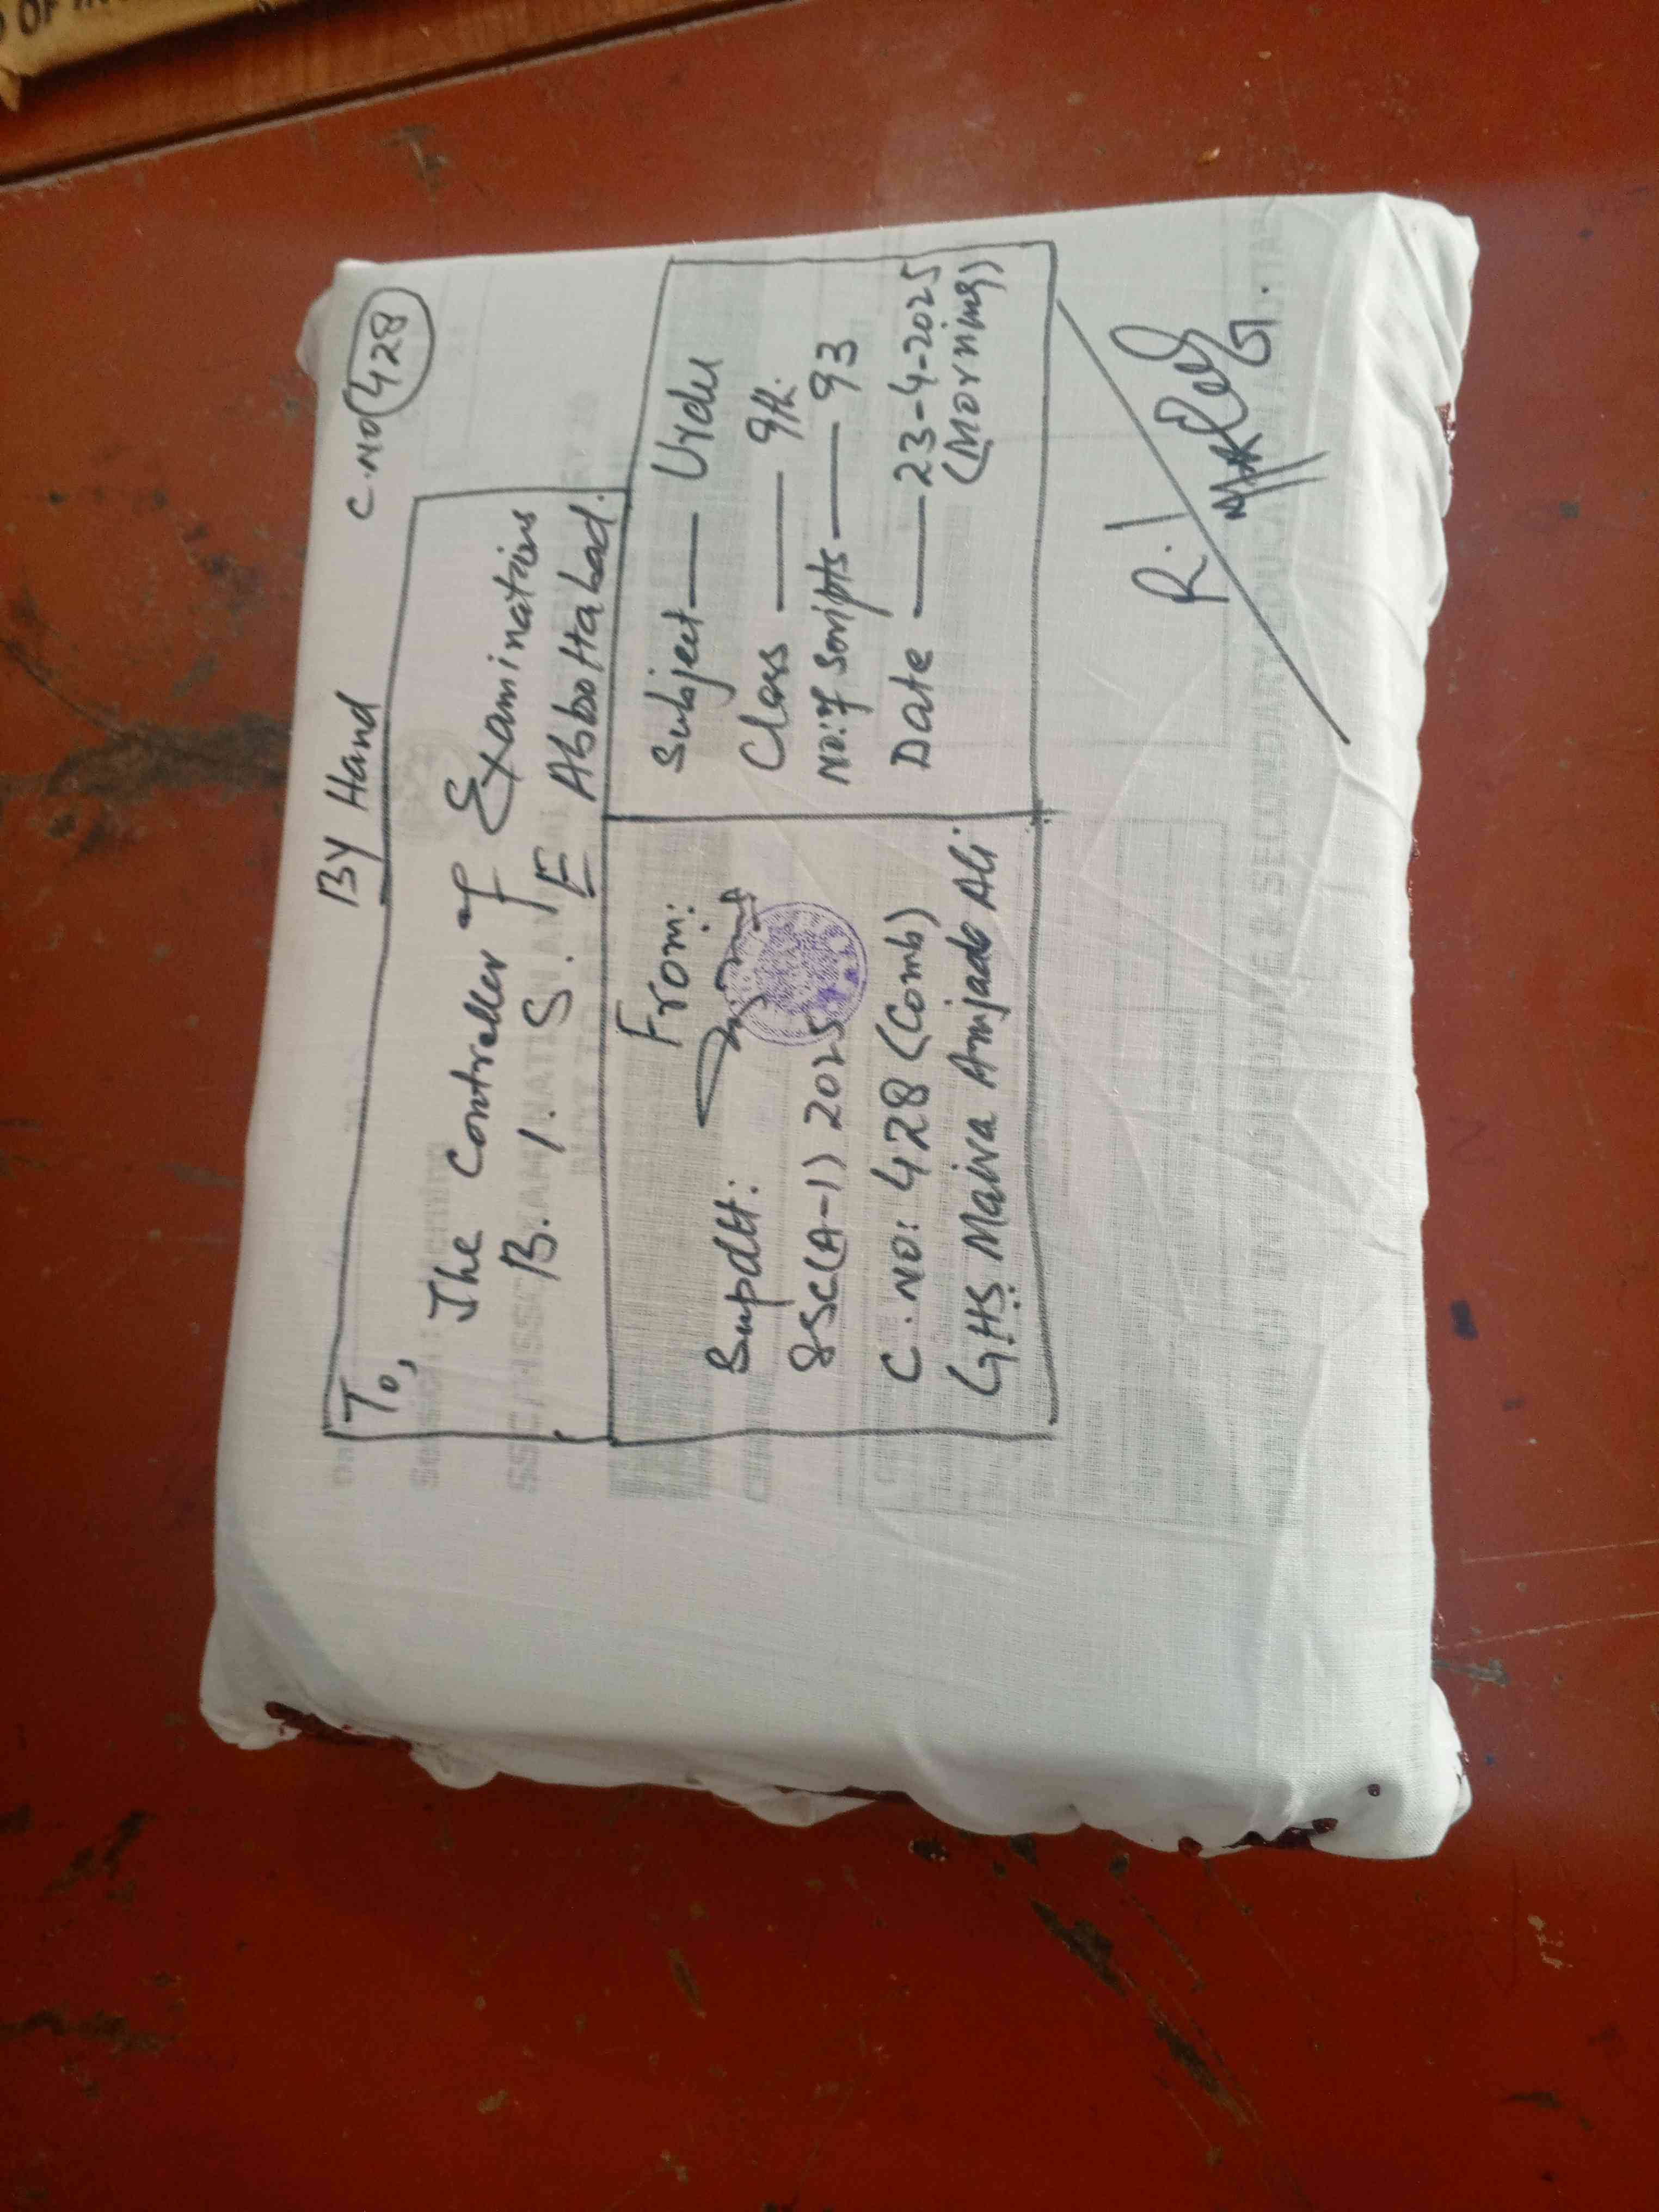 By Hand
C.NO 428
To,
The Controller of Examinations
B.I.S.E Abbottabad.
From:
Supdtt:
SSC(A-1) 2025
C.NO: 428 (Comb)
G.HS Maira Amjad Ali
Subject — Urdu
Class — 9th.
No: of Scripts — 93
Date — 23-4-2025
(Morning)
R.I